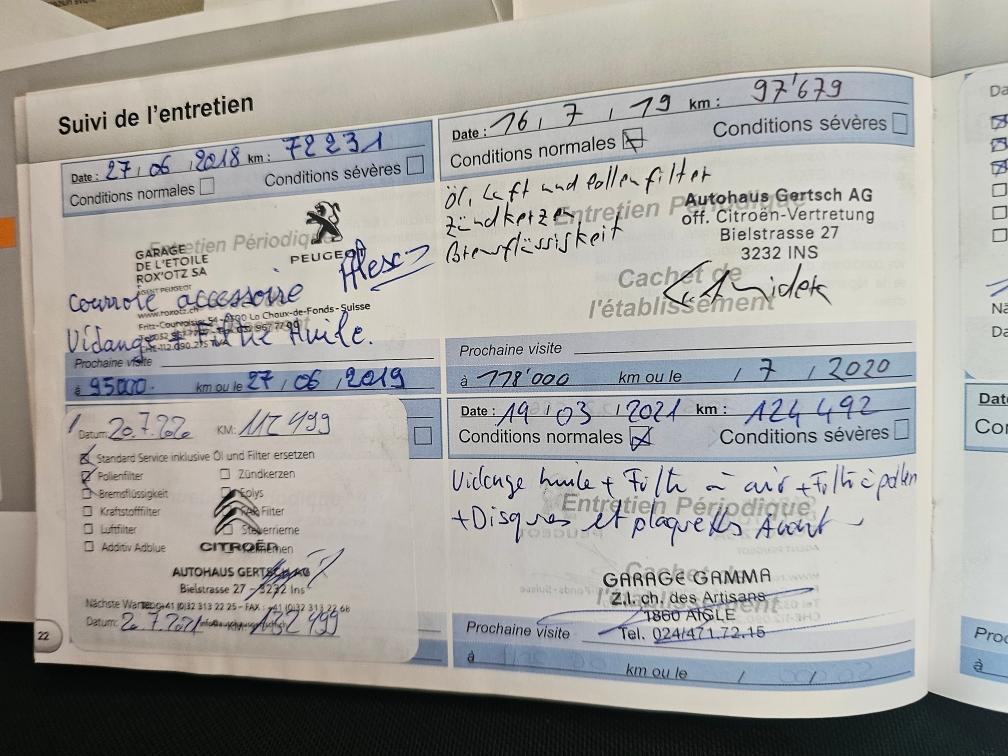 Suivi de l'entretien
Date : 27 / 06 / 2018 km : 72231
Conditions normales
Conditions sévères
Entretien Périodique
GARAGE
DE L'ETOILE
ROX'OTZ SA
AGENT PEUGEOT
PEUGEOT
Courroie accessoire
Fritz-Courvoisier 54 - 2300 La Chaux-de-Fonds - Suisse
Vidange + Filtre Huile.
Prochaine visite
à 95000.- km ou le 27 / 06 / 2019
Date : 16 / 7 / 19 km : 97'679
Conditions normales
Conditions sévères
Öl, Luft und Pollenfilter
Zündkerzen
Bremflüssigkeit
Entretien Périodique
Autohaus Gertsch AG
off. Citroën-Vertretung
Bielstrasse 27
3232 INS
Cachet de
l'établissement
Prochaine visite
à 118'000 km ou le / 7 / 2020
Datum: 20.7.2020 KM: 112 499
Standard Service inklusive Öl und Filter ersetzen
Pollenfilter
Zündkerzen
Bremsflüssigkeit
Eolys
Kraftstofffilter
FAP Filter
Luftfilter
Steuerrieme
Additiv Adblue
CITROËN
AUTOHAUS GERTSCH AG
Bielstrasse 27 - 3232 Ins
Nächste Wartung
+41 (0)32 313 22 25 - FAX : +41 (0)32 313 22 68
Datum: 20.7.2021 KM: 132 499
22
Date : 19 / 03 / 2021 km : 124 492
Conditions normales
Conditions sévères
Vidange huile + Filtre à air + Filtre à pollen
Entretien Périodique
+ Disques et plaquettes Avant
GARAGE GAMMA
Z.I. ch. des Artisans
1860 AIGLE
Tel. 024/471.72.15
Prochaine visite
à km ou le / /